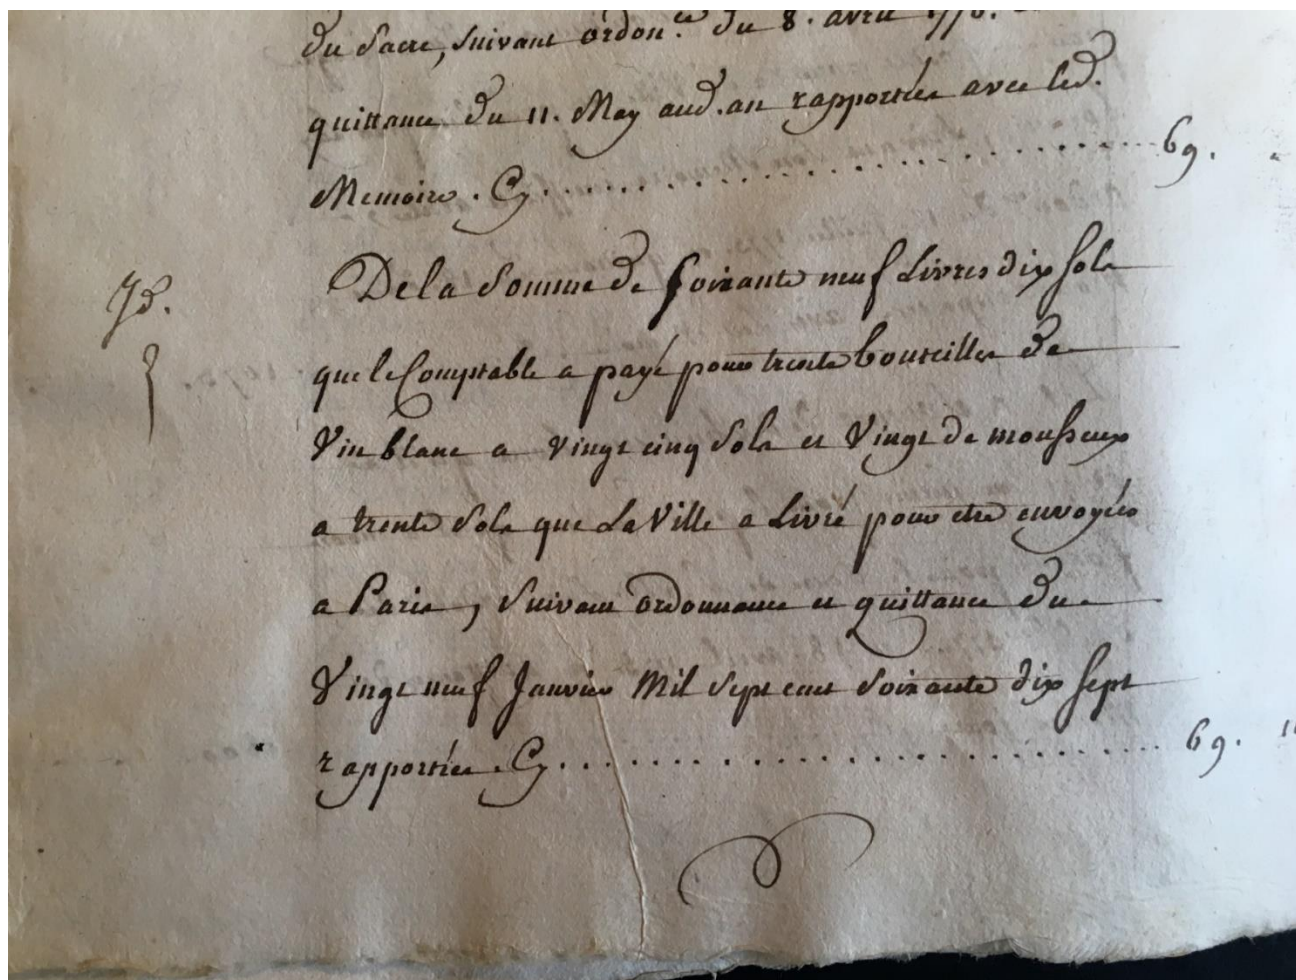 du Sacre, suivant ordon.ce du 8. avril 1776.
quittance du 11. May aud. an rapportées avec led.
Memoire. Cy.................... 69.
De la Somme de soixante neuf Livres dix sols
Id.
que le Comptable a payé pour trente bouteilles de
Vin blanc a vingt cinq Sols et Vingt de mousseux
a trente Sols que La Ville a Livré pour etre envoyées
a Paris, Suivant ordonnance et quittance du
Vingt neuf Janvier Mil Sept cent Soixante dix sept
rapportées. Cy.................... 69.